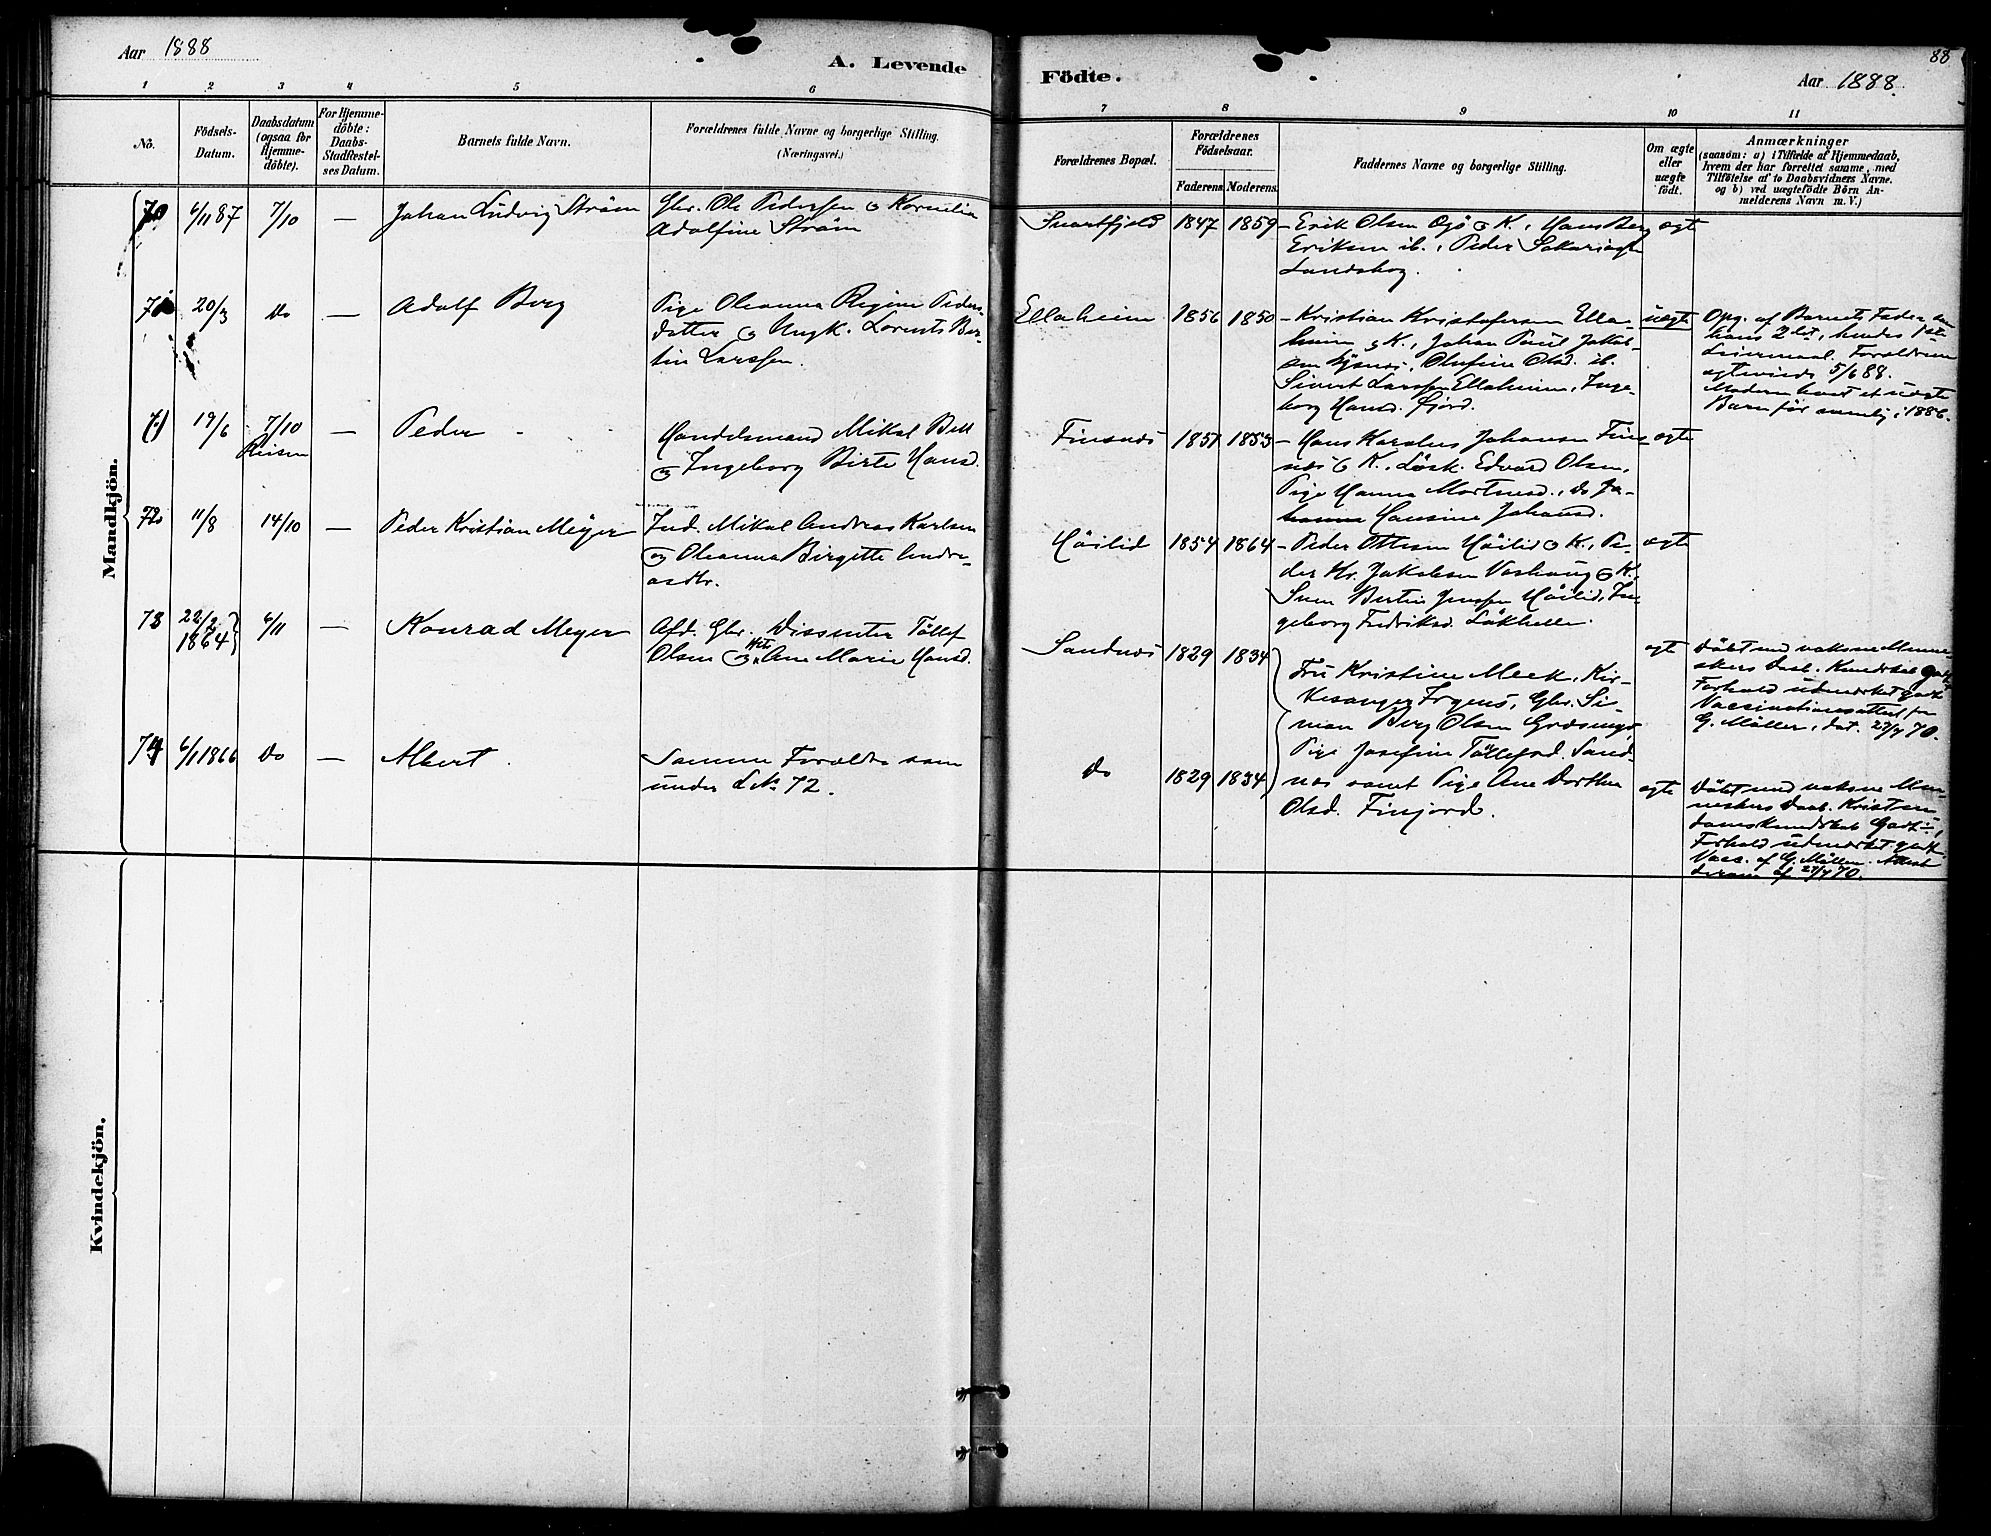 Aar 1888
A. Levende
Födte.
88
Aar 1888.
1 2 3 4 5 6
7 8 9 10 11
No.
Födsels-
Datum.
Daabsdatum
(ogsaa for
Hjemme-
döbte).
For Hjemme-
döbte:
Daabs-
Stadfæstel-
ses Datum.
Barnets fulde Navn.
Forældrenes fulde Navne og borgerlige Stilling.
(Næringsvei.)
Forældrenes Bopæl.
Forældrenes
Födselsaar.
Faderens Moderens
Faddernes Navne og borgerlige Stilling.
Om ægte
eller
uægte
födt.
Anmærkninger
(saasom: a) i Tilfælde af Hjemmedaab,
hvem der har forrettet samme, med
Tilföielse af to Daabsvidners Navne.
og b) ved uægtefödte Börn An-
melderens Navn m. V.)
Mandkjön.
70 6/11 87 7/10 — Johan Ludvig Ström
Gbr. Ole Pedersen & Kornelia
Adolfine Ström
Svartfjeld 1847 1859
Erik Olsen Ogö & K., Hans Berg
Eriksen ib., Peder Sakariasen
ægte
20/3 Do — Adolf Berg
Pige Oleanna Regine Peders-
datter & Ungk. Lorents Ber-
tin Larssen.
Ellaheim 1856 1850
Kristian Kristofersen Ella-
heim & K., Johan Paul Jakob-
Olufine Olsd. ib.
Sivert Larssen Ellaheim, Inge-
borg Hansd. Fjord.
uægte
Opg. af Barnets Fader
hans 2det, hendes 1ste
Leiermaal. Forældrene
ægteviede 5/6 88.
Moderen havt et uægte
Barn før nemlig i 1886.
19/6 7/10
Reisen
— Peder
Handelsmand Mikal Bell
& Ingeborg Birte Hansd.
Finsnæs 1857 1853
Hans Karolus Johansen Fins-
næs & K., Løsk. Edvard Olsen,
Pige Hanna Martinsd., do Jo-
hanna Hansine Johansd.
ægte
72 11/8 14/10 — Peder Kristian Meyer
Ind. Mikal Andreas Karlsen
& Oleanna Birgitte Andre-
asdtr.
Höilid 1854 1864
Peder Ottesen Höilid & K., Pe-
der Hr. Jakobsen Vashaug & K.,
Sven Bertin Jenssen Höilid, In-
geborg Fredriksd. Laukhelle.
ægte
73 22/2
1864
4/11 — Konrad Meyer
Afd. Gbr. Dissenter Tollef
Olsen & Hst. Ane Marie Hansd.
Sandnæs 1829 1834
Fru Kristine Meek, Kir-
kesanger Irgens, Gbr. Si-
mon Berg Olsen Græsnæs,
Pige Josefine Tollefsd. Sand-
næs samt Pige Ane Dorthea
Olsd. Finfjord.
ægte
Döbt med voksne Menne-
skers Daab. Kundskab godt
Forhold udmærket godt
Vaccinationsattest fra
G. Möller, dat. 27/7 70.
74 6/1 1866 Do — Albert
Samme Forældre som
under L No 72.
Do 1829 1834
ægte
Döbt med voksne Men-
neskers Daab. Kristen-
domskundskab Godt,
Forhold udmærket godt.
Vacc. af G. Möller. Attest
27/7 70.
Kvindekjön.